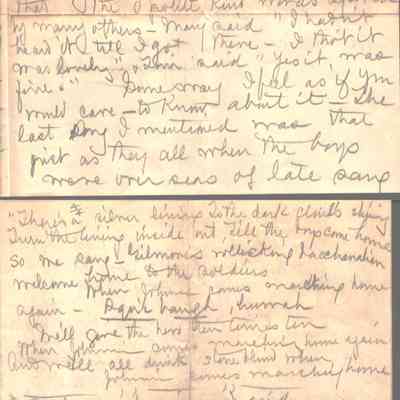 that the
by many others - Mary said "I hadn't
heard it till I got there - I tho't it
was lovely" said "Yes it was
fine." Some way I feel as if you
would care - to know about it - The
last song I mentioned was that
just as they all when the boys
were over seas of late sang
"There's a silver lining to the dark clouds shining
Turn the lining inside out, till the boys come home
So we sang - Gilmore's rollicking bacchanalian
welcome home to the soldiers
When Johnnie comes marching home
again - hurrah
We'll give the hero then times ten
When Johnnie comes marching home again
And we'll all drink stone blind when
Johnnie comes marching home